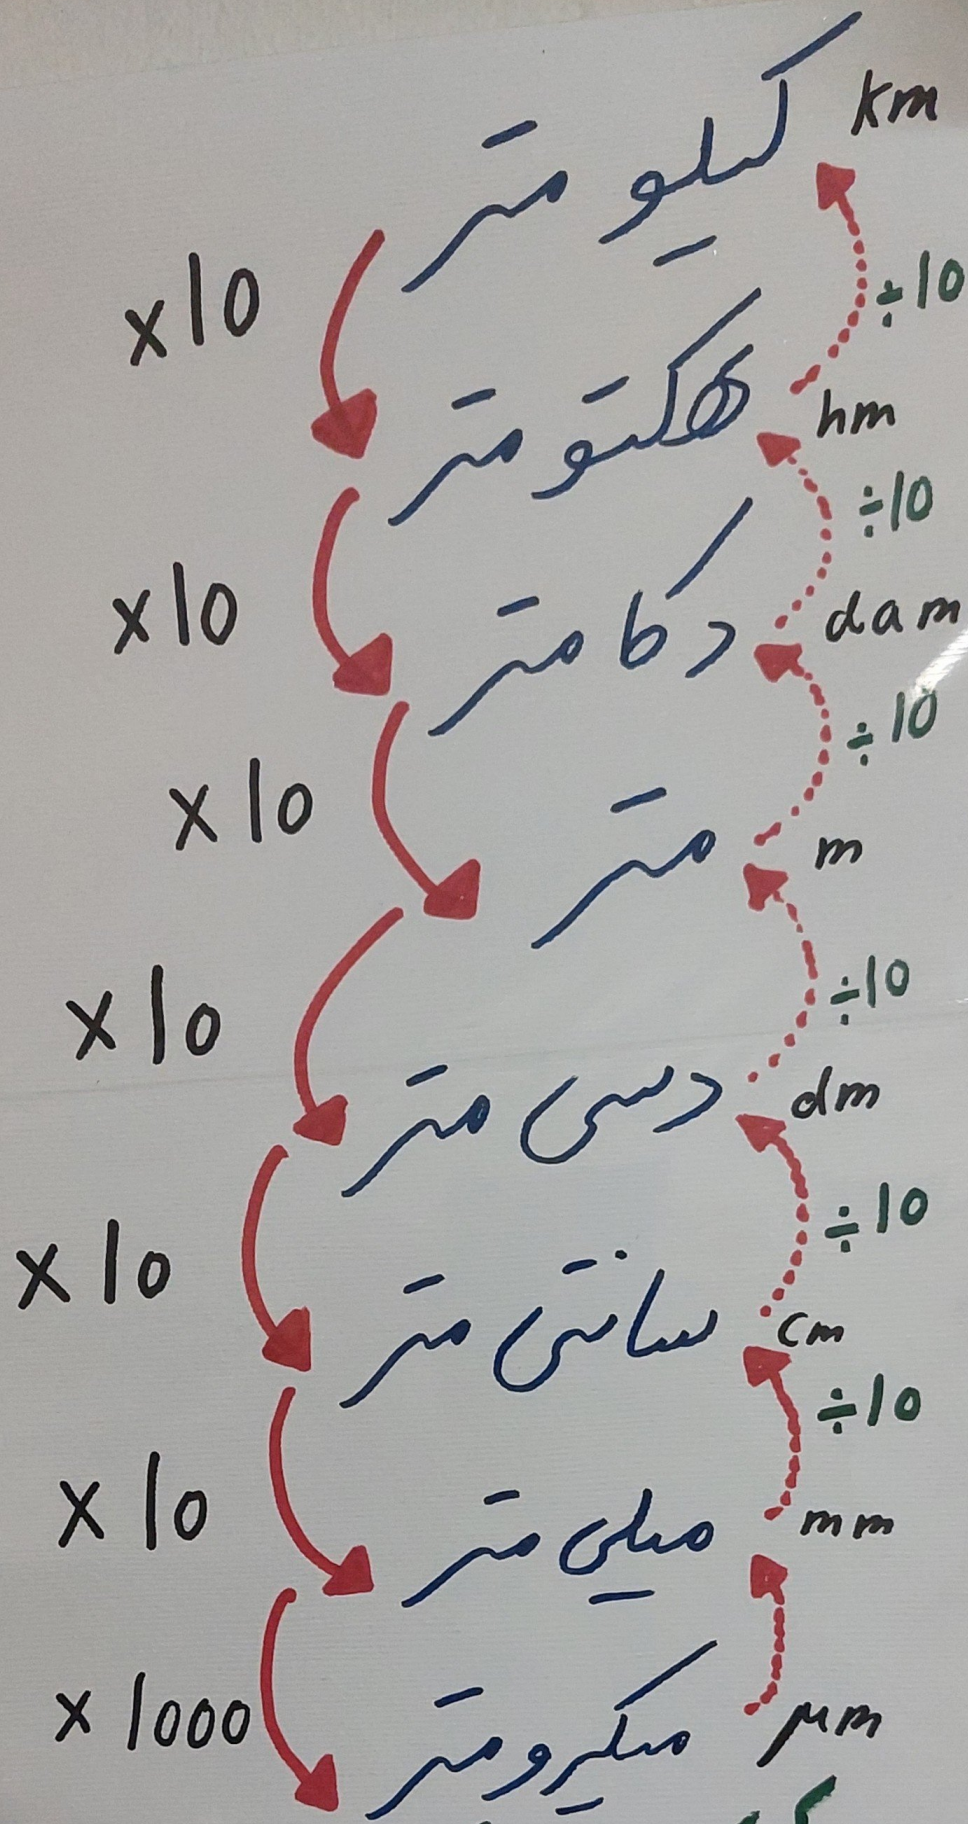 کیلو متر km
×10 ÷10
هکتو متر hm
×10 ÷10
دکا متر dam
×10 ÷10
متر m
×10 ÷10
دسی متر dm
×10 ÷10
سانتی متر cm
×10 ÷10
میلی متر mm
×1000
میکرو متر µm